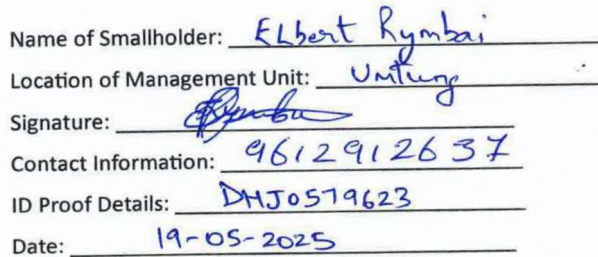 Name of Smallholder: ELbert Rymbai
Location of Management Unit: Umtung
Signature: Rymbai
Contact Information: 9612912637
ID Proof Details: DHJ0579623
Date: 19-05-2025